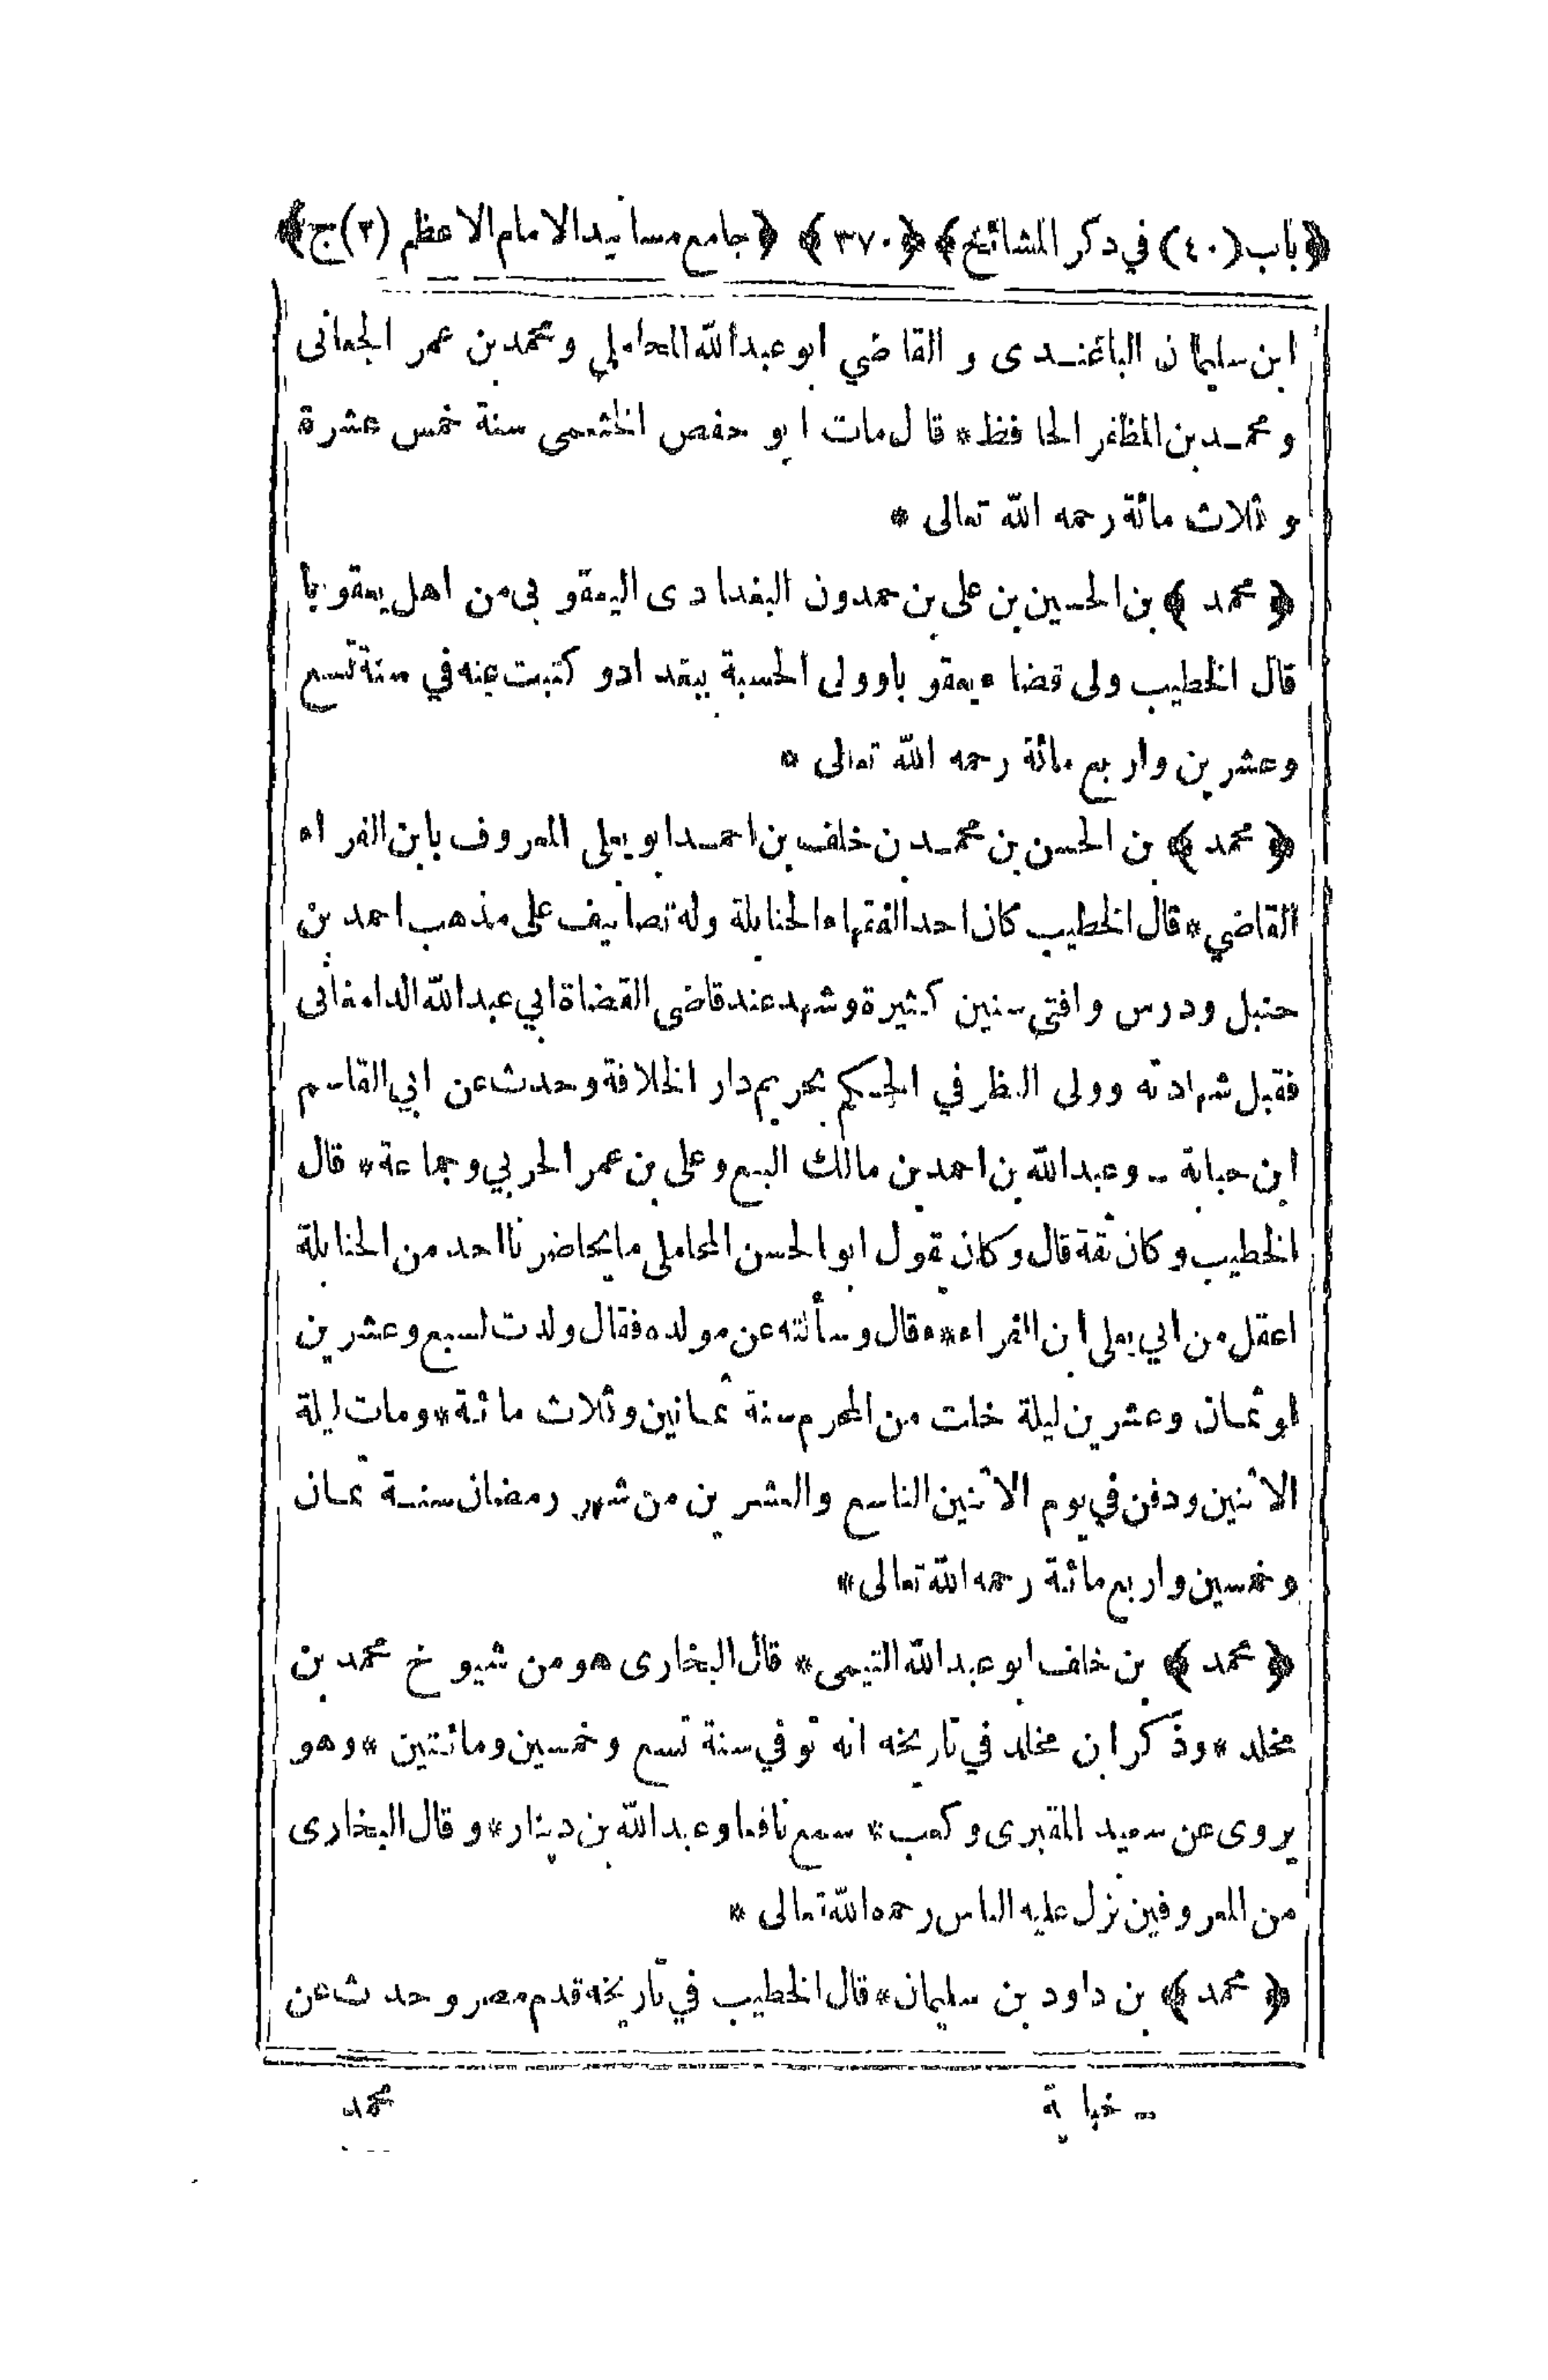 ﴿باب (٤٠) في ذكر المشائخ﴾ ﴿٣٧٠﴾ ﴿جامع مسانيد الامام الاعظم (٢) ج﴾
ابن سليمان الباغندى و القاضي ابو عبد الله المحاملي و محمد بن عمر الجعانى
و محمد بن المظفر الحافظ * قال مات ابو حفص الخثعمى سنة خمس عشرة
و ثلاث مائة رحمه الله تعالى *
﴿ محمد ﴾ بن الحسين بن على بن حمدون البغدادى اليعقوبى من اهل يعقوبا
قال الخطيب ولى قضاء يعقوبا وولى الحسبة ببغداد و كتبت عنه في سنة تسع
وعشرين واربع مائة رحمه الله تعالى *
﴿ محمد ﴾ بن الحسن بن محمد بن خلف بن احمد ابو يعلى المعروف بابن الفراء
القاضي * قال الخطيب كان احد الفقهاء الحنابلة وله تصانيف على مذهب احمد بن
حنبل ودرس وافتى سنين كثيرة وشهد عند قاضى القضاة ابي عبد الله الدامغانى
فقبل شهادته وولى النظر في الحكم بحريم دار الخلافة وحدث عن ابي القاسم
ابن حبابة ـ وعبد الله بن احمد بن مالك البيع وعلى بن عمر الحربي وجماعة * قال
الخطيب وكان ثقة قال وكان يقول ابو الحسن المحاملى ما يحاضرنا احد من الحنابلة
اعقل من ابي يعلى ابن الفراء ** قال وسألته عن مولده فقال ولدت لسبع وعشرين
او ثمان وعشرين ليلة خلت من المحرم سنة ثمانين وثلاث مائة * ومات ليلة
الاثنين ودفن في يوم الاثنين التاسع والعشرين من شهر رمضان سنة ثمان
وخمسين واربع مائة رحمه الله تعالى *
﴿ محمد ﴾ بن خلف ابو عبد الله التيمى * قال البخارى هو من شيوخ محمد بن
مخلد * وذكر ابن مخلد في تاريخه انه توفي سنة تسع وخمسين ومائتين * وهو
يروى عن سعيد المقبرى وكعب * سمع نافعا وعبد الله بن دينار * وقال البخارى
من المعروفين نزل عليه الناس رحمه الله تعالى *
﴿ محمد ﴾ بن داود بن سليمان * قال الخطيب في تاريخه قدم مصر وحدث عن
ـ خباية
محمد